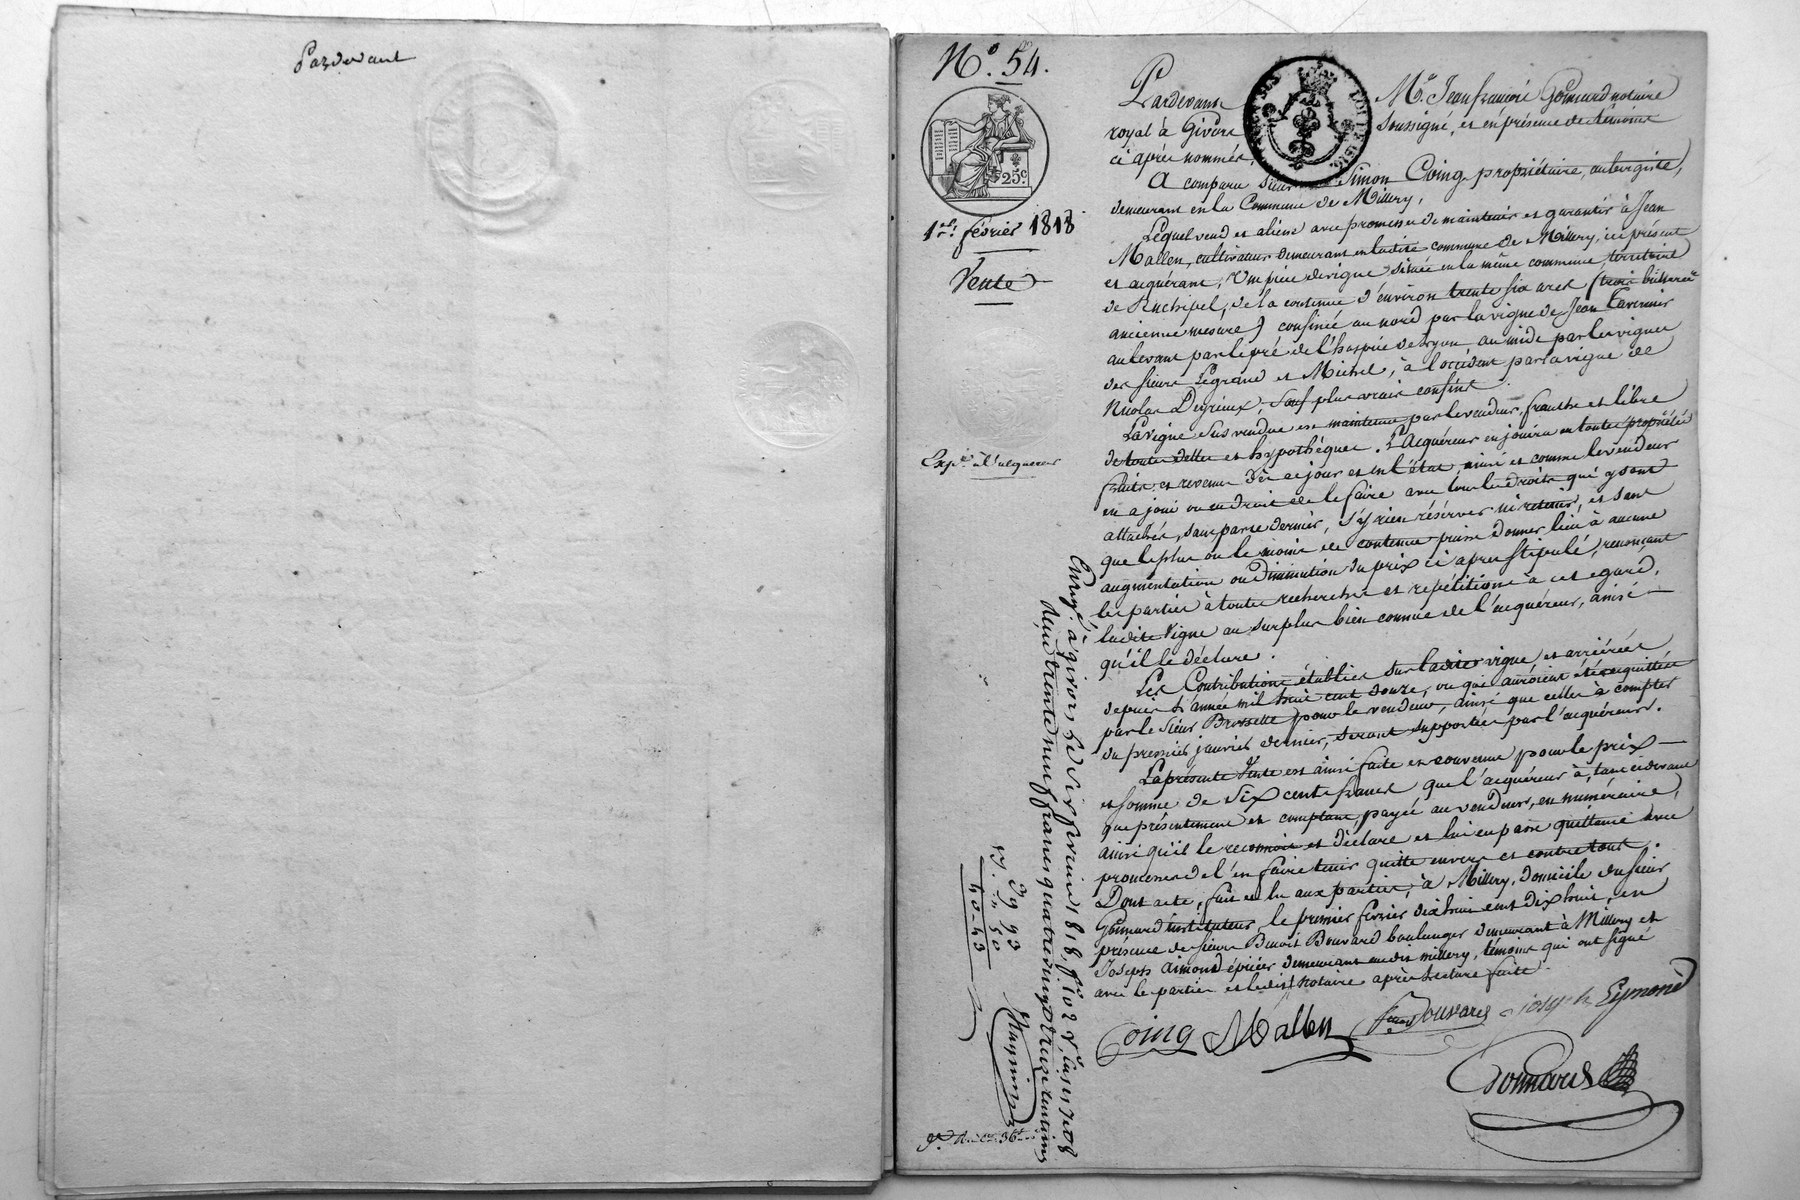 Pardevant
N.º 54.
25.c
1.er février 1818
Vente
Exp.on à l'acquereur
Pardevant Me. Jean françois Goinard notaire
royal à Givors soussigné, et en présence des témoins
ci après nommés,
A comparu sieur Simon Coing propriétaire, aubergiste,
demeurant en la Commune de Millery,
Lequel vend et aliène avec promesse de maintenir et garantir à Jean
Mallen, cultivateur demeurant en ladite commune de Millery, ici présent
et acquérant, Une pièce de vigne située en la même commune, territoire
de Ruchipel, de la contenue d'environ trente six ares (trois bicherées
ancienne mesure) confinée au nord par la vigne de Jean Tavernier
au levant par le pré de l'hospice de Lyon au midi par les vignes
des sieurs Legrand et Michel, à l'occident par la vigne de
Nicolas Degrieux, sauf plus vrais confins.
La vigne sus vendue est maintenue par le vendeur, franche et libre
de toutes dettes et hypothèques. L'Acquéreur en jouira en toute propriété
fruits et revenus dès ce jour et en l'état, ainsi et comme le vendeur
en a joui ou eu droit de le faire avec tous les droits qui y sont
attachés, sans par ce dernier, s'y rien réserver ni retenir, et sans
que le plus ou le moins de contenue puisse donner lieu à aucune
augmentation ou diminution du prix ci après stipulé, renonçant
les parties à toutes recherches et répétitions à cet égard,
ladite vigne au surplus bien connue de l'acquéreur, ainsi
qu'il le déclare.
Les Contributions établies sur ladite vigne, et arriérées
depuis l'année mil huit cent douze, ou qui auroient été acquittées
par le Sieur Brossette pour le vendeur, ainsi que celles à compter
du premier janvier dernier, seront supportées par l'acquéreur.
La présente Vente est ainsi faite et convenue pour le prix
et somme de Six cents francs que l'acquéreur à, tant ci devant
que présentement et comptant, payée au vendeur, en numéraire,
ainsi qu'il le reconnoit et déclare et lui en passe quittance avec
promesse de l'en faire tenir quitte envers et contre tous.
Dont acte, fait et lu aux parties, à Millery, domicile du sieur
Goinard instituteur, le premier février dix huit cent dix huit, en
présence de sieurs Benoit Bouvard boulanger demeurant à Millery et
Joseph Aimond épicier demeurant audit Millery, témoins qui ont signé
avec les parties et ledit notaire après lecture faite.
Coing Mallen Bouvard joseph Eymond
Goinard
Enregé. à givors le dix fevrier 1818, fo. 102 Vo. Cases 7 et 8
Reçu trente neuf francs quatre vingt treize centimes
39 93
40 43